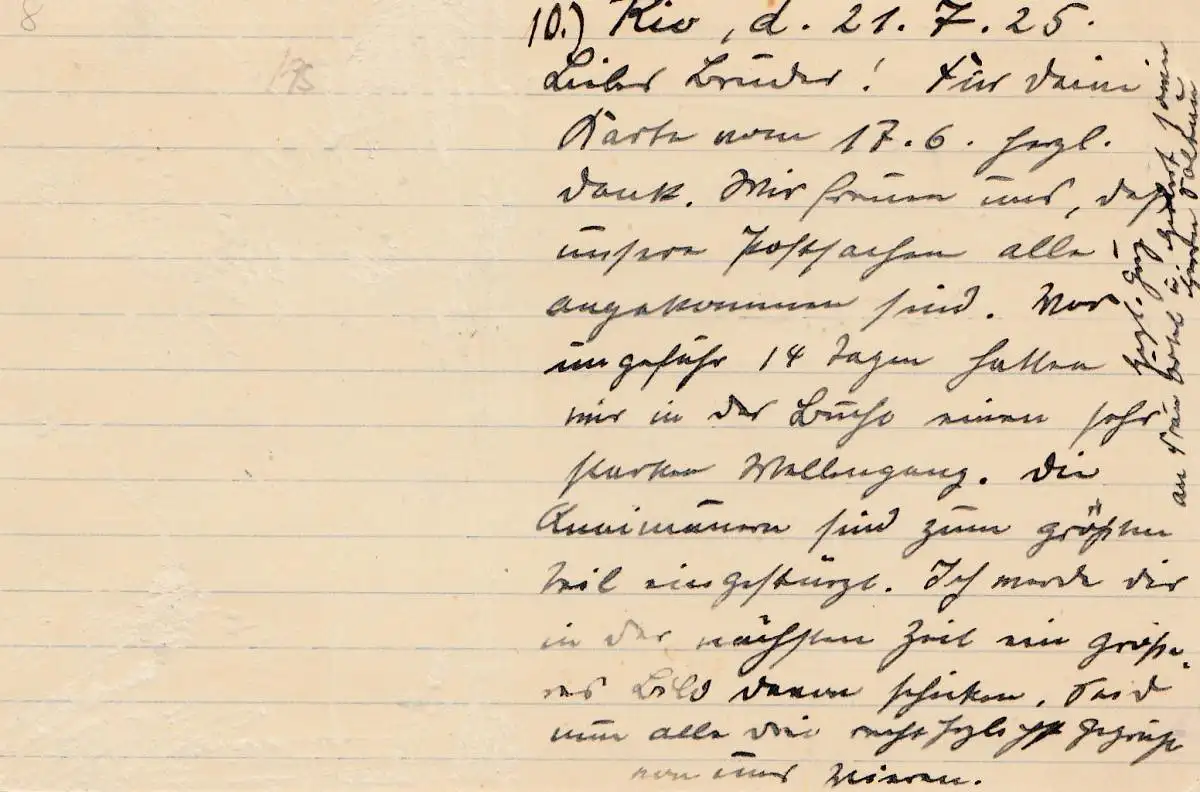 10.) Rio, d. 21. 7. 25.
Lieber Bruder! Für Deine
Karte vom 17. 6. herzl.
Dank. Wir freuen uns, daß
unsere Postsachen alle
angekommen sind. Vor
ungefähr 14 Tagen hatten
wir in der Bucht einen sehr
starken Wellengang. Die
Kaaimauern sind zum größten
Teil eingestürzt. Ich werde Dir
in der nächsten Zeit ein größe-
res Bild davon schicken. Seid
nun alle drei recht herzlichst gegrüßt
von uns Vieren.
Herzl. Gruß
an Frau u.
175
8